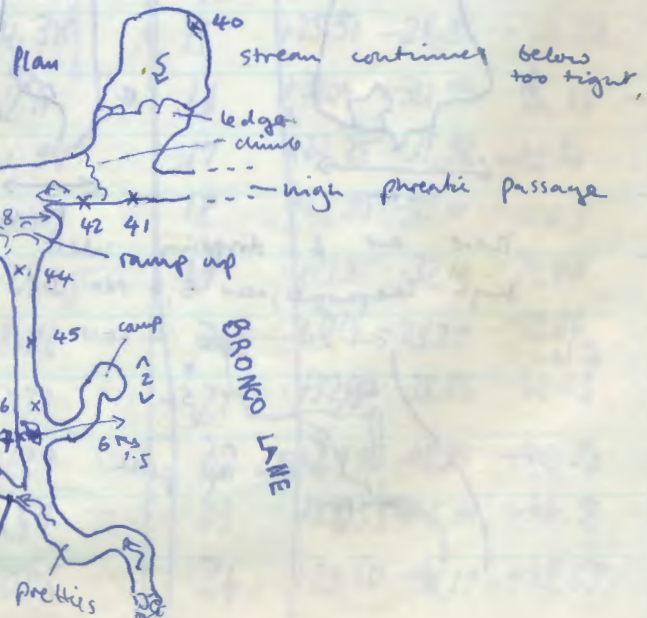 40
Plan
stream continues below
too tight,
5
ledge
climb
high phreatic passage
42 41
8
ramp up
44
45
camp
2
BRONCO LANE
6
6
1.5
pretties